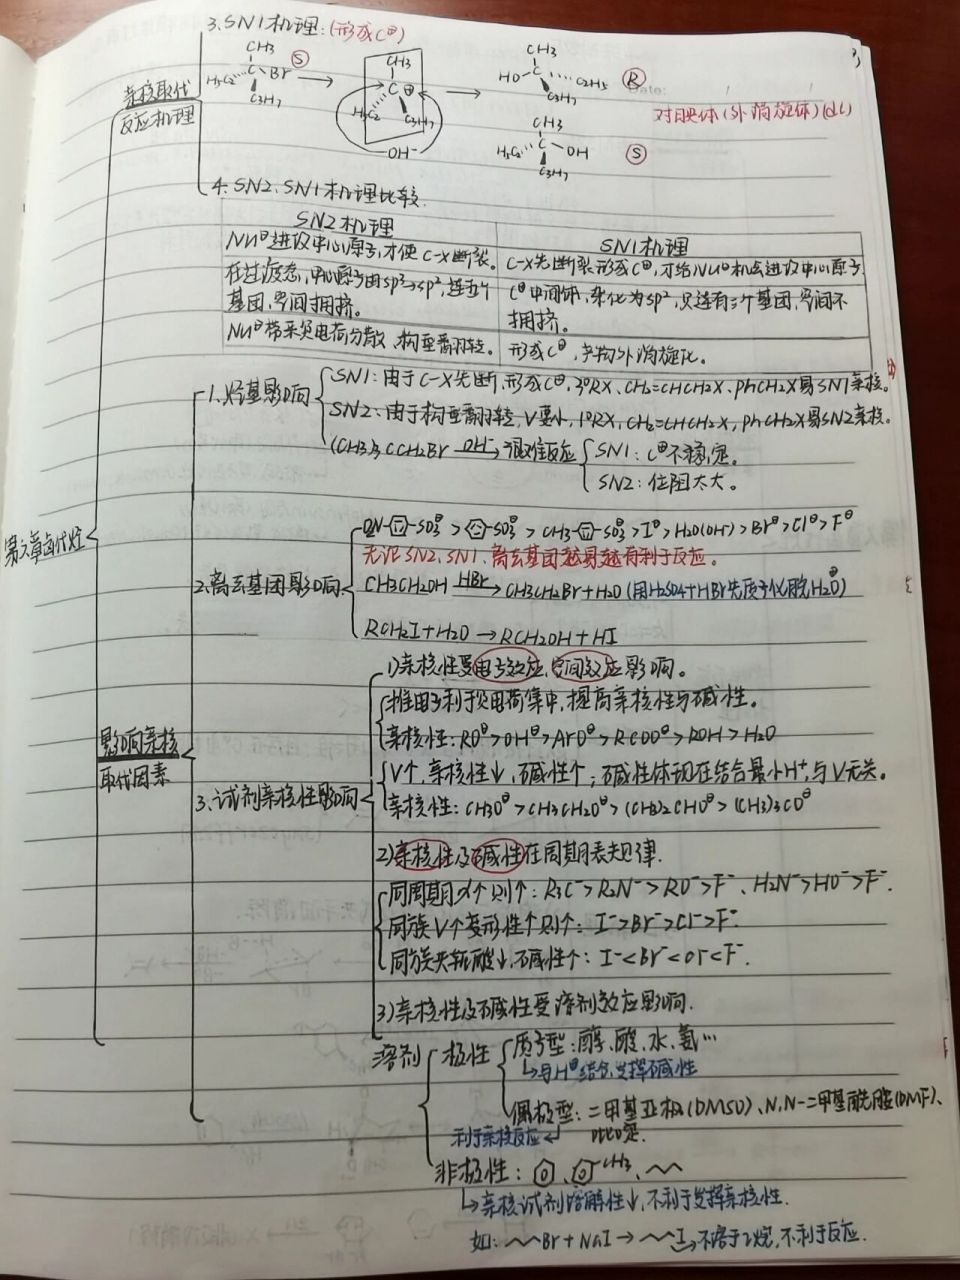 3. SN1机理:(形成C⊕)
CH3
H5C2 C Br Ⓢ
C3H7
CH3
C ⊕
H5C2 C3H7
OH⁻
CH3
HO-C C2H5 Ⓡ
C3H7
CH3
H5C2 C OH Ⓢ
C3H7
Date:
对映体(外消旋体)(dl)
亲核取代
反应机理
4. SN2、SN1机理比较.
SN2机理
SN1机理
Nu⊖进攻中心原子,才使C-X断裂。
C-X先断裂形成C⊕,才给Nu⊖机会进攻中心原子.
在过渡态,中心原子由sp³→sp²,连五个
基团,空间拥挤。
C⊕中间体,杂化为sp²,只连有三个基团,空间不
拥挤。
Nu⊖带来负电荷分散、构型翻转。
形成C⊕,产物外消旋化。
第六章卤代烃
影响亲核
取代因素
1. 烃基影响
SN1:由于C-X先断,形成C⊕,3°RX, CH2=CHCH2X, PhCH2X易SN1亲核。
SN2:由于构型翻转,V要小,1°RX, CH2=CHCH2X, PhCH2X易SN2亲核。
(CH3)3CCH2Br OH⁻→ 很难反应
SN1:C⊕不稳定。
SN2:位阻太大。
2. 离去基团影响
>I⊖>H2O(OH)>Br⊖>Cl⊖>F⊖
无论SN2、SN1、离去基团越易越有利于反应。
CH3CH2OH HBr→ CH3CH2Br+H2O (用H2SO4+HBr先质子化脱H2O)
RCH2I+H2O → RCH2OH+HI
3. 试剂亲核性影响
1)亲核性受电子效应、空间效应影响。
推电子利于负电荷集中,提高亲核性与碱性。
亲核性: RO⊖>OH⊖>ArO⊖>RCOO⊖>ROH>H2O
V↑,亲核性↓,碱性↑;碱性体现在结合最小H⁺,与V无关。
亲核性: CH3O⊖>CH3CH2O⊖>(CH3)2CHO⊖>(CH3)3CO⊖
2)亲核性及碱性在周期表规律.
同周期α↑则↑: R3C⁻>R2N⁻>RO⁻>F⁻、H2N⁻>HO⁻>F⁻.
同族V↑变形性↑则↑: I⁻>Br⁻>Cl⁻>F⁻
同族共轭酸↓,碱性↑: I⁻<Br⁻<Cl⁻<F⁻.
3)亲核性及碱性受溶剂效应影响.
溶剂
极性
质子型:醇、酸、水、氨…
↳与H⊕结合,发挥碱性
偶极型:二甲基亚砜(DMSO)、N,N-二甲基酰胺(DMF)、
利于亲核反应↲ 吡啶.
非极性: CH3
↳亲核试剂溶解性↓,不利于发挥亲核性.
如: Br+NaI→ I→不溶于乙烷,不利于反应.